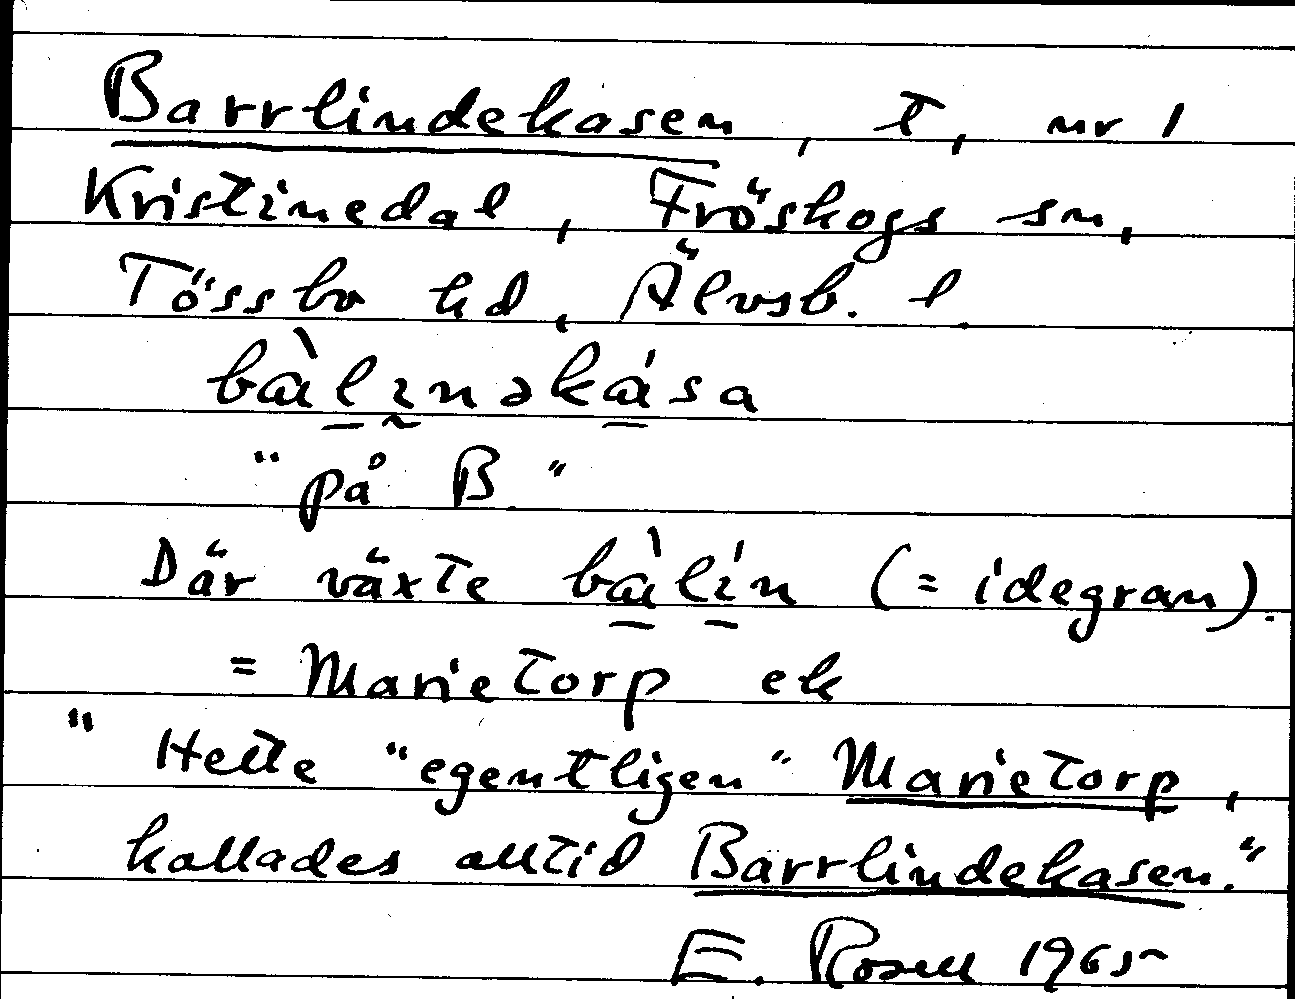 Barrlindekasen, t, nr 1
Kristinedal, Fröskogs sn,
Tössbo hd, Älvsb. l.
bàlınəkása
"på B."
Där växte bàlín (= idegran).
= Marietorp ek
" Hette "egentligen" Marietorp,
kallades alltid Barrlindekasen."
E. Rosell 1965